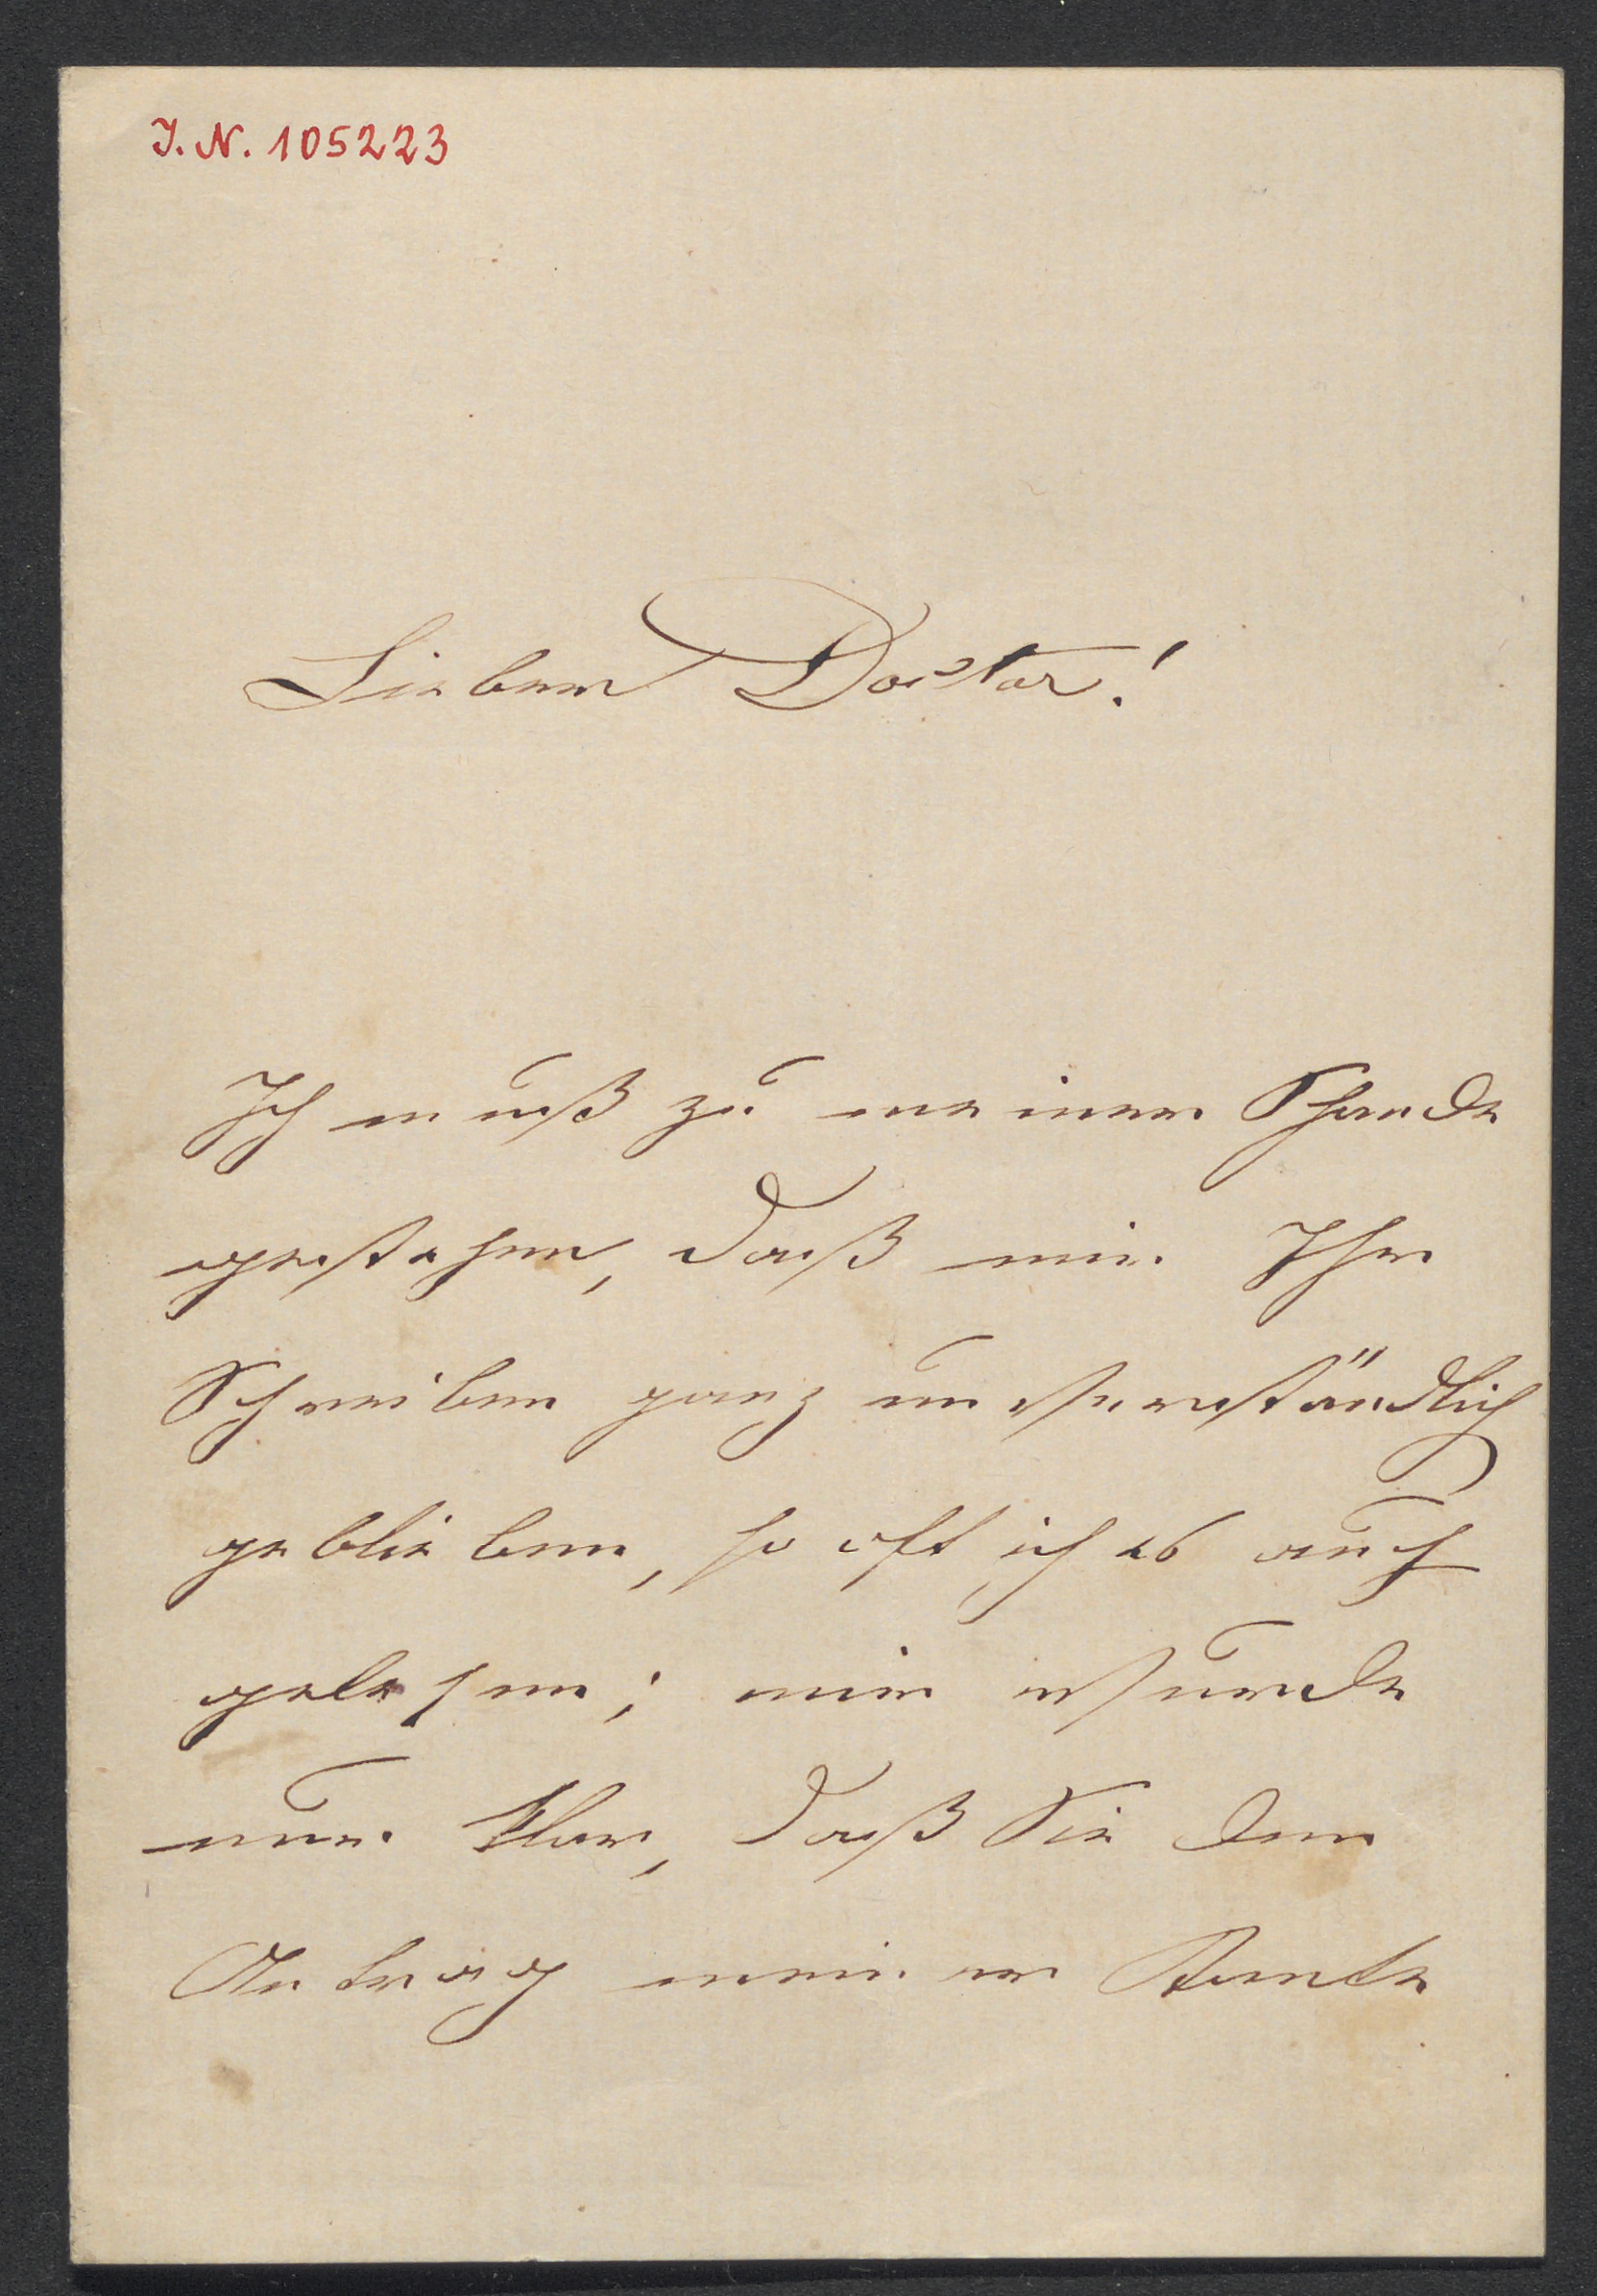 I. N. 105223
Lieber Doctor!
Ich muß zu meiner Schande
gestehen, daß mir Ihr
Schreiben ganz unverständlich
geblieben, so oft ich es auch
gelesen; mir wurde
nur klar, daß Sie den
Antrag meiner Tante